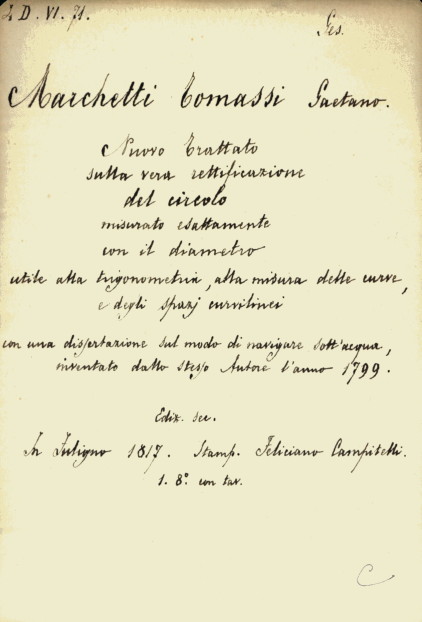 4 D. VI. 71.
Ges.
Marchetti Tomassi Gaetano.
Nuovo Trattato
sulla vera rettificazione
del circolo
misurato esattamente
con il diametro
utile alla trigonometria, alla misura delle curve,
e degli spazj curvilinei
con una dissertazione sul modo di navigare sott'acqua,
inventato dallo stesso Autore l'anno 1799.
Ediz. sec.
In Fuligno 1817. Stamp. Feliciano Campitelli.
1. 8.º con tav.
C